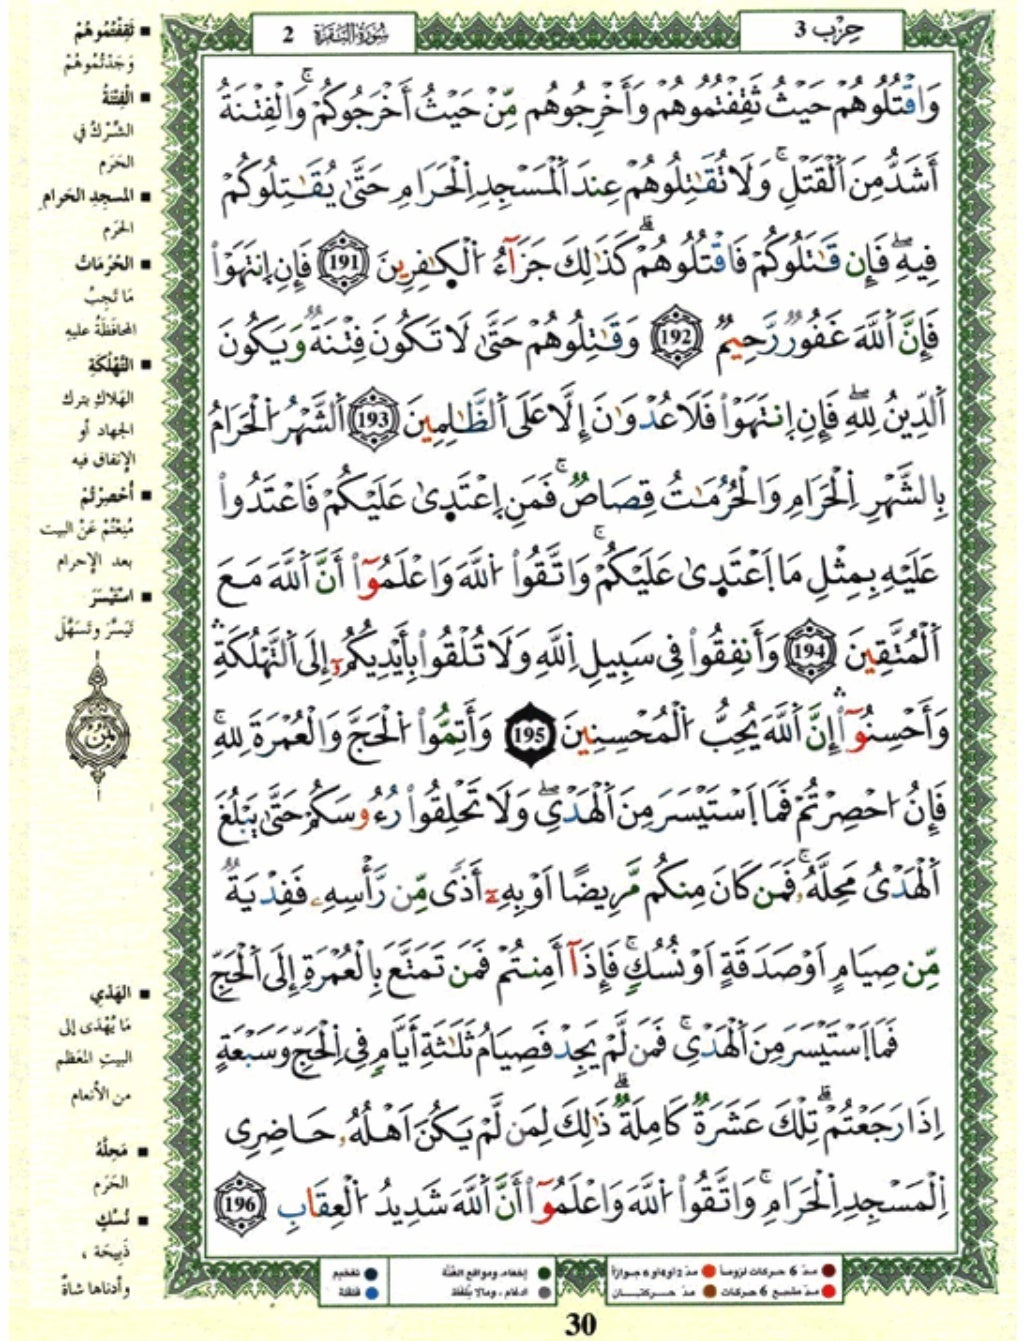 حِزْب 3
سُورَةُ البَقَرَة 2
وَاقْتُلُوهُمْ حَيْثُ ثَقِفْتُمُوهُمْ وَأَخْرِجُوهُم مِّنْ حَيْثُ أَخْرَجُوكُمْ ۚ وَالْفِتْنَةُ
أَشَدُّ مِنَ اَلْقَتْلِ ۚ وَلَا تُقَٰتِلُوهُمْ عِندَ اَلْمَسْجِدِ اِلْحَرَامِ حَتَّىٰ يُقَٰتِلُوكُمْ
فِيهِ ۖ فَإِن قَٰتَلُوكُمْ فَاقْتُلُوهُمْ ۗ كَذَٰلِكَ جَزَآءُ اُلْكٰفِرِينَ 191 فَإِنِ اِنتَهَوْا
فَإِنَّ اَللَّهَ غَفُورٌ رَّحِيمٌ 192 وَقَٰتِلُوهُمْ حَتَّىٰ لَا تَكُونَ فِتْنَةٌ وَيَكُونَ
اَلدِّينُ لِلهِ ۖ فَإِنِ اِنتَهَوْا فَلَا عُدْوَٰنَ إِلَّا عَلَى اَلظَّٰلِمِينَ 193 اَلشَّهْرُ اُلْحَرَامُ
بِالشَّهْرِ اِلْحَرَامِ وَالْحُرُمَٰتُ قِصَاصٌ ۚ فَمَنِ اِعْتَدِىٰ عَلَيْكُمْ فَاعْتَدُوا
عَلَيْهِ بِمِثْلِ مَا اَعْتَدِىٰ عَلَيْكُمْ ۚ وَاتَّقُوا اُللَّهَ وَاعْلَمُوٓا أَنَّ اَللَّهَ مَعَ
اَلْمُتَّقِينَ 194 وَأَنفِقُوا فِى سَبِيلِ اِللَّهِ وَلَا تُلْقُوا بِأَيْدِيكُمُۥٓ إِلَى اَلتَّهْلُكَةِ ۛ
وَأَحْسِنُوٓا ۛ إِنَّ اَللَّهَ يُحِبُّ اُلْمُحْسِنِينَ 195 وَأَتِمُّوا اُلْحَجَّ وَالْعُمْرَةَ لِلهِ ۚ
فَإِنُ اُحْصِرْتُمْ فَمَا اَسْتَيْسَرَ مِنَ اَلْهَدْىِ ۖ وَلَا تَحْلِقُوا رُءُوسَكُمْ حَتَّىٰ يَبْلُغَ
اَلْهَدْىُ مَحِلَّهُۥ ۚ فَمَن كَانَ مِنكُم مَّرِيضًا اَوْ بِهِۦٓ أَذًى مِّن رَّأْسِهِۦ فَفِدْيَةٌ
مِّن صِيَامٍ اَوْ صَدَقَةٍ اَوْ نُسُكٍ ۚ فَإِذَآ أَمِنتُمْ فَمَن تَمَتَّعَ بِالْعُمْرَةِ إِلَى اَلْحَجِّ
فَمَا اَسْتَيْسَرَ مِنَ اَلْهَدْىِ ۚ فَمَن لَّمْ يَجِدْ فَصِيَامُ ثَلَٰثَةِ أَيَّامٍ فِى اِلْحَجِّ وَسَبْعَةٍ
اِذَا رَجَعْتُمْ ۗ تِلْكَ عَشَرَةٌ كَامِلَةٌ ۗ ذَٰلِكَ لِمَن لَّمْ يَكُنَ اَهْلُهُۥ حَاضِرِى
اِلْمَسْجِدِ اِلْحَرَامِ ۚ وَاتَّقُوا اُللَّهَ وَاعْلَمُوٓا أَنَّ اَللَّهَ شَدِيدُ اُلْعِقَابِ 196
■ ثَقِفْتُمُوهُمْ
وَجَدْتُمُوهُمْ
■ الْفِتْنَةُ
الشِّرْكُ فِي
الحَرَم
■ المسجِدِ الحَرامِ
الحَرَم
■ الحُرُمَاتُ
مَا تَجِبُ
المحافَظَةُ عليهِ
■ التَّهْلُكَةِ
الهَلاكِ بترك
الجهاد أو
الإنفاق فيه
■ أُحْصِرْتُمْ
مُنِعْتُمْ عَنْ البيت
بعد الإحرام
■ اسْتَيْسَرَ
تَيَسَّرَ وتَسَهَّلَ
ثُمُن
■ الهَدْيِ
مَا يُهْدَى إلى
البيتِ المُعَظم
من الأنعام
■ مَحِلَّهُ
الحَرَم
■ نُسُكٍ
ذَبِيحَة ،
وأدناها شاةٌ
مدّ 6 حركات لزوماً ● مدّ 2 أو 4 أو 6 جوازاً
مدّ مشبع 6 حركات ● مدّ حركتان
إخفاء، ومواقع الغُنَّة
ادغام ، وما لا يُلفَظ
تفخيم
قلقلة
30